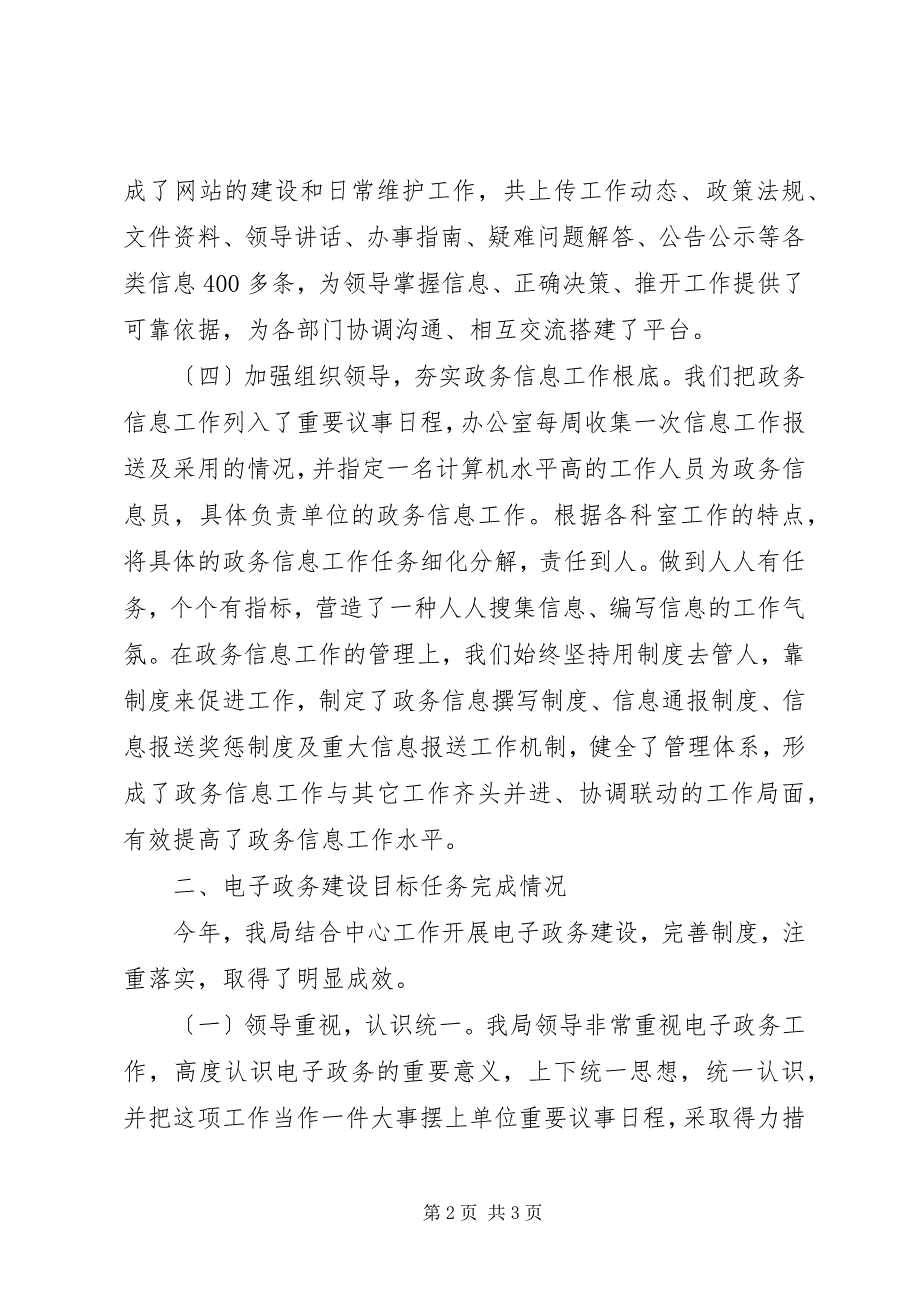 成了网站的建设和日常维护工作，共上传工作动态、政策法规、
文件资料、领导讲话、办事指南、疑难问题解答、公告公示等各
类信息 400 多条，为领导掌握信息、正确决策、推开工作提供了
可靠依据，为各部门协调沟通、相互交流搭建了平台。
〔四〕加强组织领导，夯实政务信息工作根底。我们把政务
信息工作列入了重要议事日程，办公室每周收集一次信息工作报
送及采用的情况，并指定一名计算机水平高的工作人员为政务信
息员，具体负责单位的政务信息工作。根据各科室工作的特点，
将具体的政务信息工作任务细化分解，责任到人。做到人人有任
务，个个有指标，营造了一种人人搜集信息、编写信息的工作气
氛。在政务信息工作的管理上，我们始终坚持用制度去管人，靠
制度来促进工作，制定了政务信息撰写制度、信息通报制度、信
息报送奖惩制度及重大信息报送工作机制，健全了管理体系，形
成了政务信息工作与其它工作齐头并进、协调联动的工作局面，
有效提高了政务信息工作水平。
二、电子政务建设目标任务完成情况
今年，我局结合中心工作开展电子政务建设，完善制度，注
重落实，取得了明显成效。
〔一〕领导重视，认识统一。我局领导非常重视电子政务工
作，高度认识电子政务的重要意义，上下统一思想，统一认识，
并把这项工作当作一件大事摆上单位重要议事日程，采取得力措
第 2 页 共 3 页